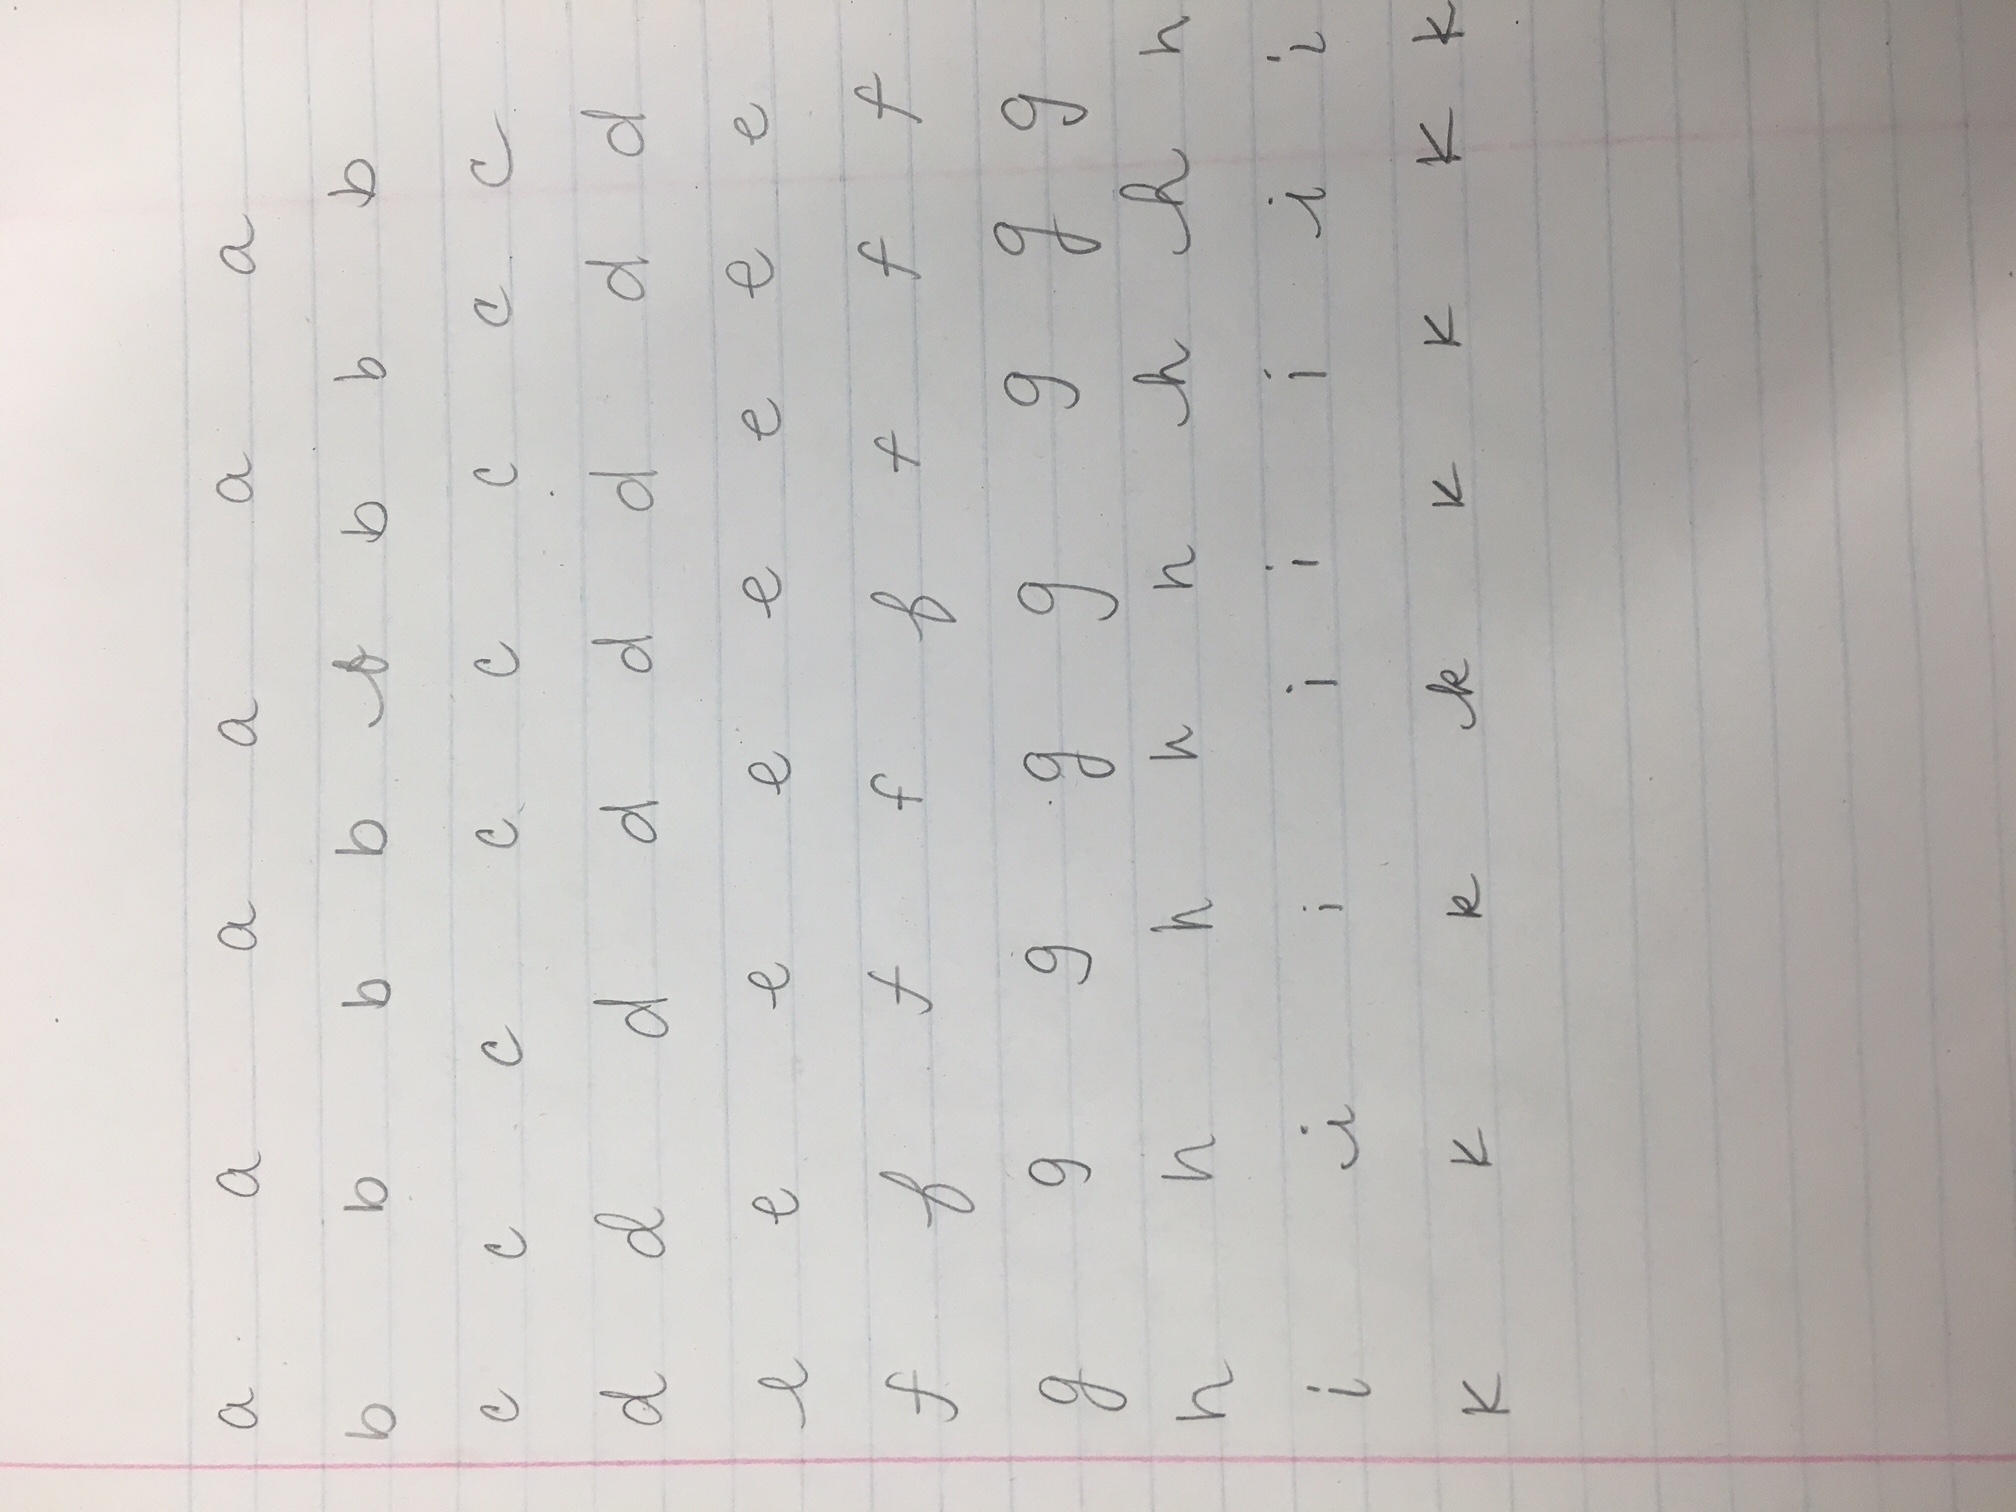 a a a a a a
b b b b b b b b
c c c c c c c c
d d d d d d d d
e e e e e e e e
f f f f f f f f
g g g g g g g g
h h h h h h h h
i i i i i i i i
k k k k k k k k